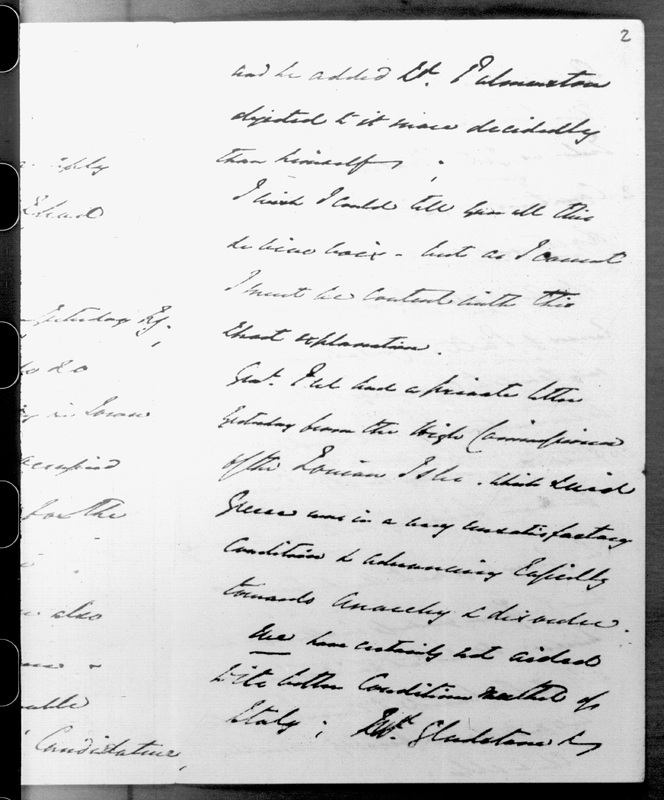 2
and he added Ld. Palmerston
objected to it more decidedly
than himself ;
I wish I could tell you all this
de vive voix - but as I cannot
I must be content with this
short explanation.
Genl. Peel had a private letter
yesterday from the High Commissioner
of the Ionian Isles. which said
Greece was in a very unsatisfactory
Condition & advancing rapidly
towards Anarchy & disorder.
We have certainly not aided
its better Condition neither of
Italy ; Mr. Gladstone &
reply
yesterday Ey;
to do
in town
occupied
for the
also
Candidature,